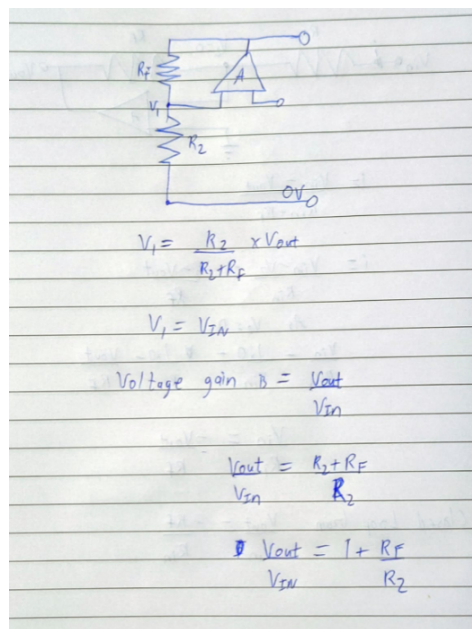 RF
A
V1
R2
0V
V1 = R2 / R2+RF x Vout
V1 = VIN
Voltage gain is = Vout / VIn
Vout / VIn = R2+RF / R2
Vout / VIN = 1 + RF / R2